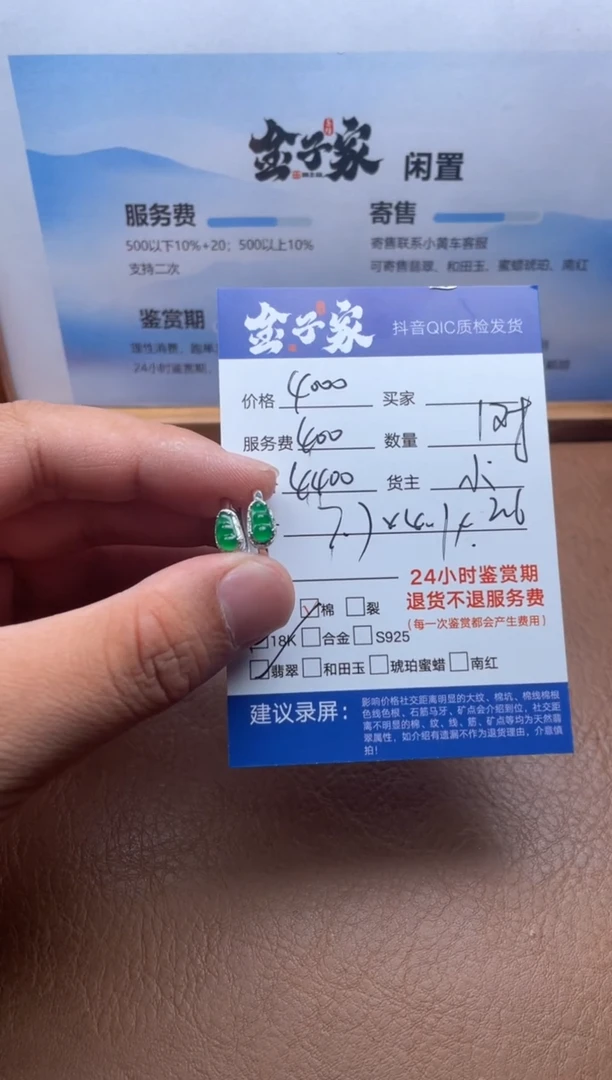 金子家 闲置
服务费 寄售
500以下10%+20；500以上10% 寄售联系小黄车客服
支持二次 可寄售翡翠、和田玉、蜜蜡琥珀、南红
鉴赏期
24小时鉴赏期，
金子家 抖音QIC质检发货
价格 4000 买家
服务费 400 数量 1对
4400 货主 小
24小时鉴赏期
退货不退服务费
(每一次鉴赏都会产生费用)
棉 裂
18K 合金 S925
翡翠 和田玉 琥珀蜜蜡 南红
建议录屏：
影响价格社交距离明显的大纹、棉坑、棉线棉根
色线色根、石筋马牙、矿点会介绍到位，社交距
离不明显的棉、纹、线、筋、矿点等均为天然翡
翠属性，如介绍有遗漏不作为退货理由，介意慎
拍！